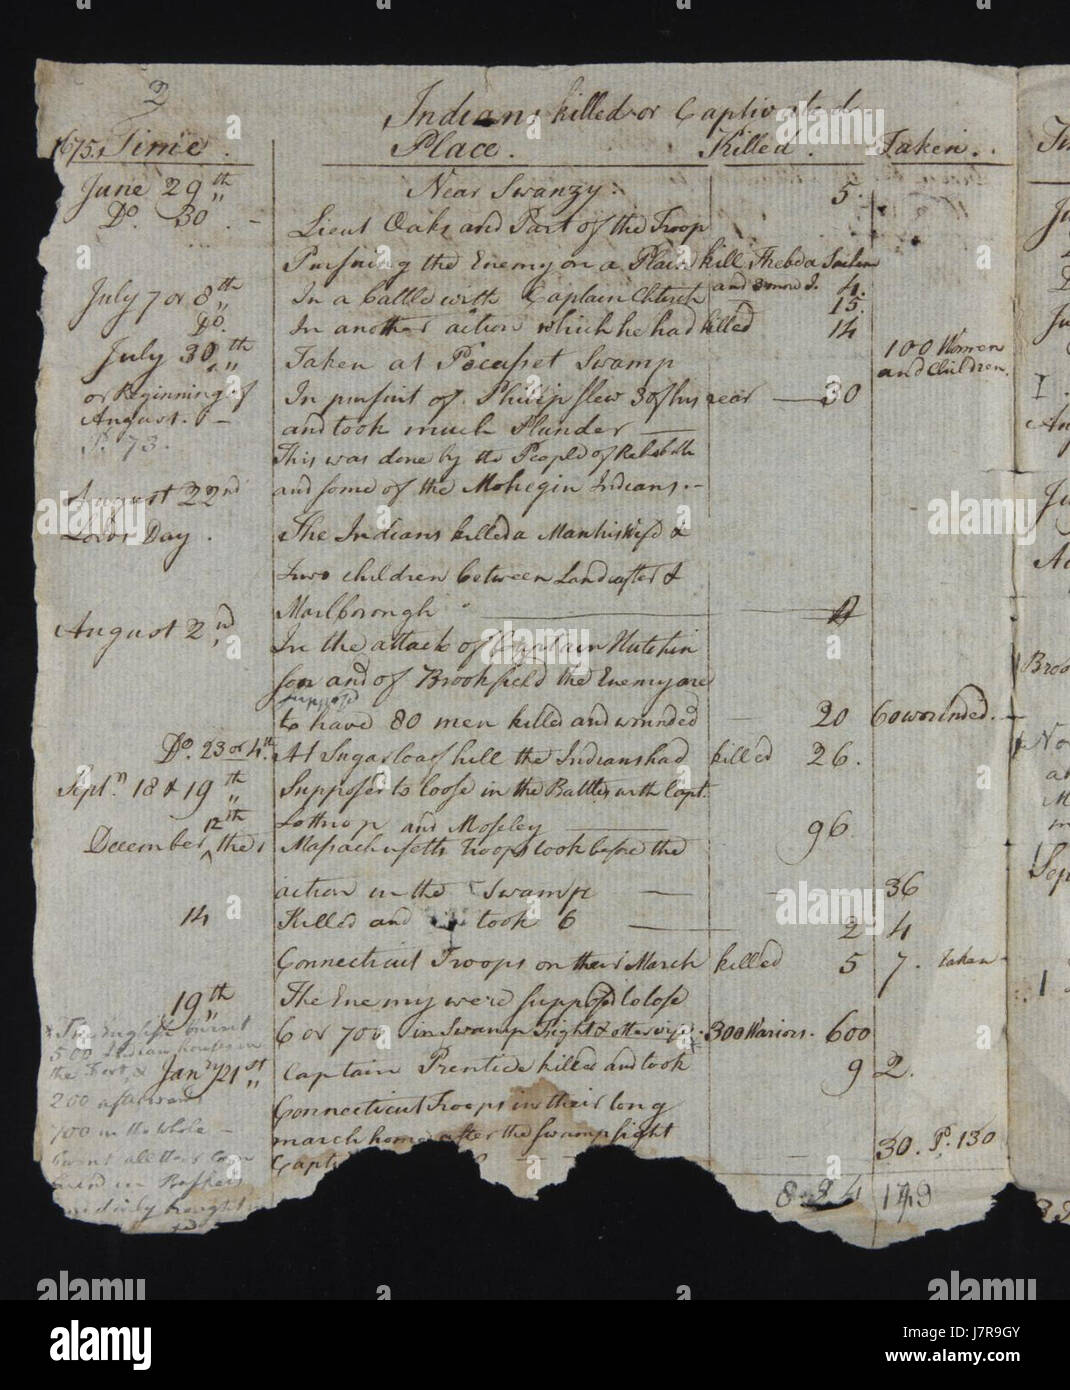 2
Indians killed or Captivated
1675. Time. Place. Killed. Taken.
June 29th Near Swanzy. 5.
Do. 30 - Lieut Oaks and Part of the Troop
Pursuing the Enemy on a Plain kill Thebe a Sachem
and 3 more I. 4.
July 7 or 8th In a battle with Captain Church 15.
Do. In another action which he had killed 14
July 30th Taken at Pocasset Swamp 100 Women
and Children.
or Beginning of In pursuit of Philip slew 30 of his rear 30
August. and took much Plunder
P. 73. This was done by the People of Rehoboth
August 22nd and some of the Mohegin Indians.-
Lords Day. The Indians killed a Man his Wife &
two children between Landcaster &
Marlborough
August 2nd In the attack of Captain Hutchin
son and of Brookfield the Enemy are
supposed
to have 80 men killed and wounded 20 60 wounded.
Do. 23 or 4th. At Sugarloaf hill the Indians had killed 26.
Septr. 18 & 19th Supposed to loose in the Battles with Capt.
Lothrop and Moseley 96
12th
December, the Massachusetts Troops took before the
action in the Swamp 36
14 Killed and took 6 2 4
Connecticut Troops on their March killed 5 7. taken
19th The Enemy were supposed to lose
6 or 700 in Swamp Fight & otherwise. 300 Wariors. 600
Jany 21st Captain Prentice killed and took 9 2.
Connecticut Troops in their long
march home after the swamp fight
30. P. 130
149
The English burnt
500 Indian houses in
the Fort, &
200 afterward
700 in the whole -
burnt all their Corn
in Baskets
alamy stock photo
J7R9GY
www.alamy.com